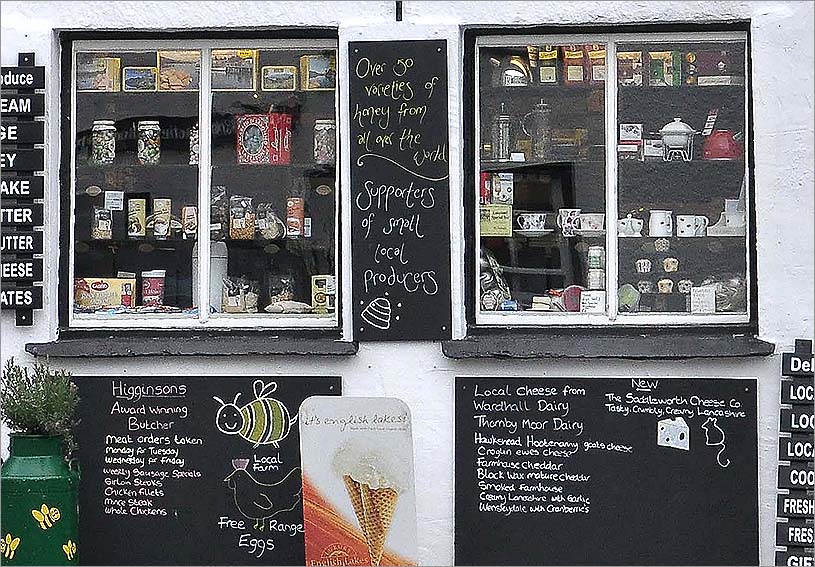 oduce
EAM
GE
EY
AKE
TTER
UTTER
HEESE
ATES
Over 50
varieties of
honey from
all over the
world
Supporters
of small
local
producers
Higginsons
Award Winning
Butcher
Meat orders taken
Monday for Tuesday
Wednesday for Friday
weekly Sausage Specials
Sirloin Steaks
Chicken fillets
Mince Steak
Whole Chickens
Local
Farm
Free Range
Eggs
it's english lakes!
English Lakes
Local Cheese from
Wardhall Dairy
Thornby Moor Dairy
Hawkshead Hootenanny goats cheese
Croglin ewes cheese
Farmhouse cheddar
Black Wax mature cheddar
Smoked Farmhouse
Creamy Lancashire with Garlic
Wensleydale with Cranberrie's
New
The Saddleworth Cheese Co
Tasty, Crumbly, Creamy Lancashire
Del
LOC
LOC
LOCA
COO
FRESH
FRES
GIF